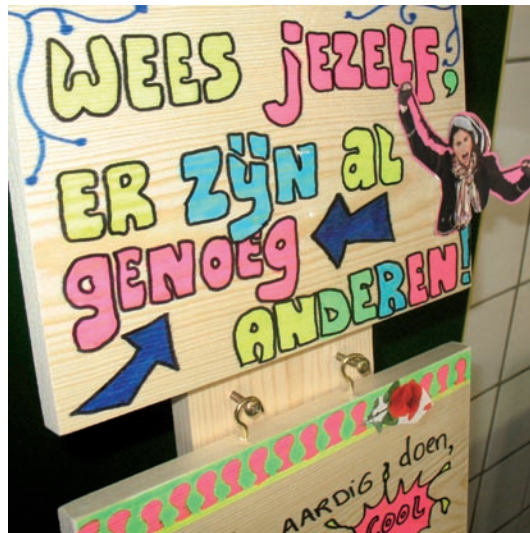 WEES jEZELF,
ER ZIJN AL
GENOEG
ANDEREN!
AARDIG doen,
COOL